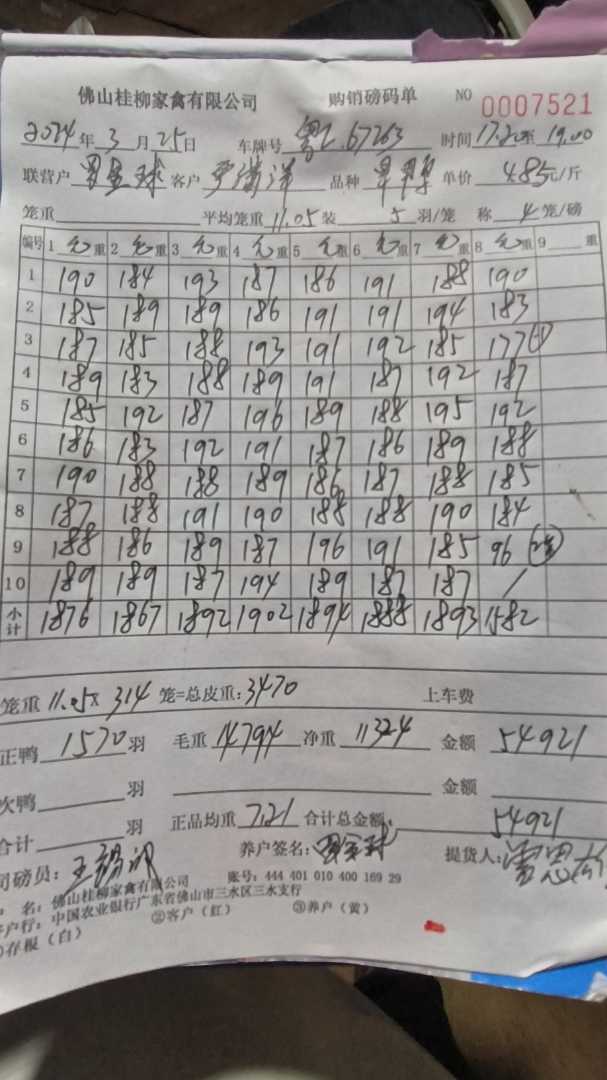 佛山桂柳家禽有限公司 购销磅码单 NO 0007521
2024年3月25日 车牌号 粤 67263 时间 17.20至19.00
联营户 客户 品种 单价 4.85元/斤
笼重 平均笼重 11.05 装 5 羽/笼 称 4 笼/磅
编号 1 毛重 2 毛重 3 毛重 4 毛重 5 毛重 6 毛重 7 毛重 8 毛重 9 重
1 190 184 193 187 186 191 188 190
2 185 189 189 186 191 191 194 183
3 187 185 188 193 191 192 185 177
4 189 183 188 189 191 187 192 187
5 185 192 187 196 189 188 195 192
6 186 183 192 191 187 186 189 188
7 190 188 188 189 186 187 188 185
8 187 188 191 190 188 188 190 184
9 188 186 189 187 196 191 185 96
10 189 189 187 194 189 187 187 /
小计 1876 1867 1892 1902 1894 1888 1893 1582
笼重 11.05x 314 笼=总皮重: 3470 上车费
正鸭 1570 羽 毛重 14794 净重 11324 金额 54921
次鸭 羽 金额
合计 羽 正品均重 7.21 合计总金额: 54921
司磅员: 王 养户签名: 提货人:
户 名: 佛山桂柳家禽有限公司 账号: 444 401 010 400 169 29
开户行: 中国农业银行广东省佛山市三水区三水支行
①存根（白） ②客户（红） ③养户（黄）